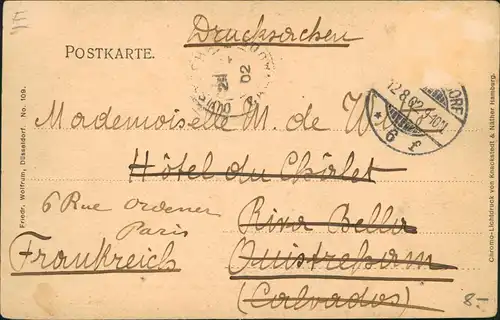 Drucksachen
POSTKARTE.
02
12.8.02
DORF
* 6 f
Mademoiselle M. de
Hôtel du Châlet
6 Rue Ordener
Paris
Riva Bella
Frankreich
Ouistreham
(Calvados)
8.-
Friedr. Wolfrum, Düsseldorf. No. 109.
Chromo-Lichtdruck von Knackstedt & Näther Hamburg.